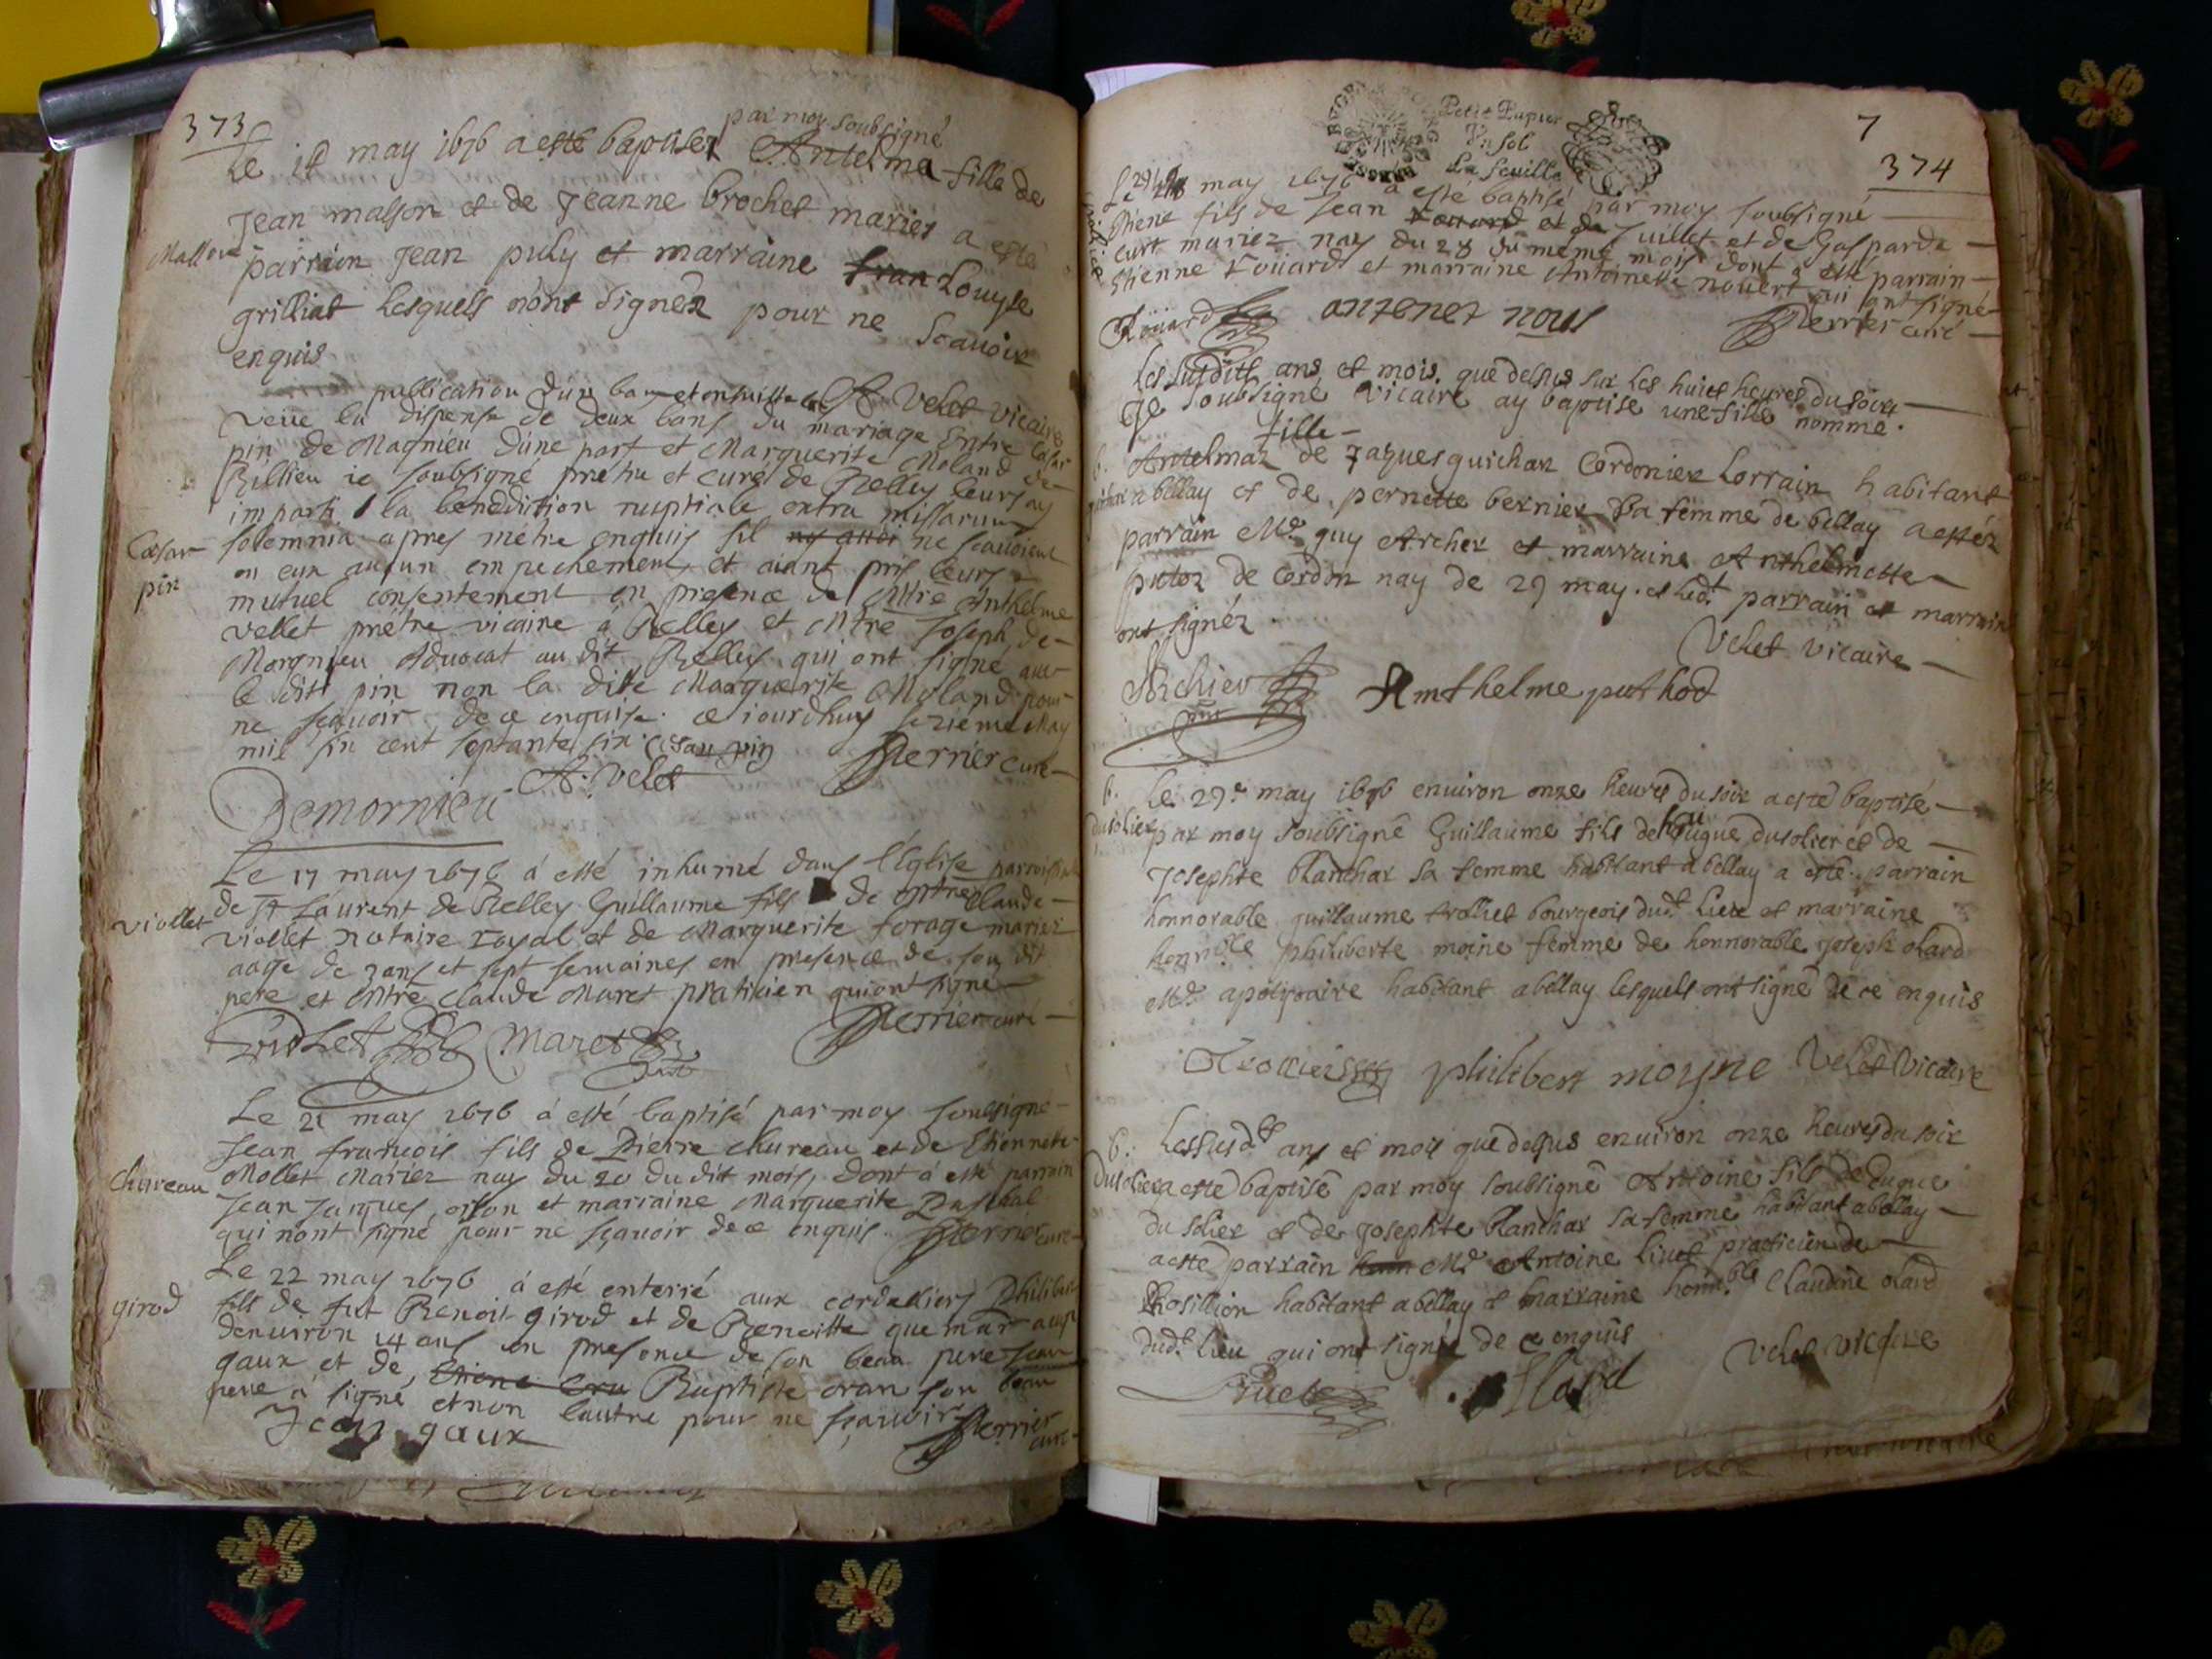 373
par moy soubsigné
Le 1[?] may 1676 a esté baptisez Antelma fille de
Jean malson et de Jeanne brochet mariez a esté
Mallon
parrain Jean puly et marraine Louyse
grilliat Lesquels n'ont signéz pour ne Scauoir
enquis
publication d'un ban et ensuitte A. Velet vicaire
Veüe la dispense de deux bans du mariage Entre Cesar
pin de Magnieu d'une part et Marguerite Moland de
Rillieu ie soubsigné pretre et curé de Belley leurs ay
imparti la benediction nuptiale extra missarum
Cesar
pin
solemnia apres metre enquis sil ne scauoient
en eux aucun empechement et aiant pris leurs
mutuel consentement en presence de Mtre Anthelme
vellet pretre vicaire a Belley et Mtre Joseph de
Morgnieu Advocat au dit Belley qui ont signé auec
le dit pin non la dite Marguerite Moland pour
ne sçauoir de ce enquise ce iourdhuy sezieme May
mil six cent septante six cesar pin
A. Velet Perrier curé
Demornieu
Le 17 may 1676 á esté inhumé dans l'Eglise parroissiale
de St Laurent de Belley Guillaume fils de Mtre Claude
viollet
viollet notaire royal et de Marguerite forage mariez
aagé de 3 ans et sept semaines en presence de son dit
pere et Mtre Claude Maret praticien qui ont signé
Perrier curé
Viollet Maret
Le 21 may 1676 á esté baptisé par moy soubsigné
Jean françois fils de Pierre chureau et de Etiennette
chureau
Mollet Mariez nay du 20 du dit mois dont á esté parrain
Jean Jacques orson et marraine Marguerite Paschal
qui n'ont signé pour ne sçauoir de ce enquis Perrier curé
Le 22 may 1676 á esté enterré aux cordelliers Philibert
girod
fils de fut Benoit girod et de Benoitte quemar aagé
denuiron 14 ans en presence de son beau pere Jean
gaux et de Etiene Baptiste oran son beau
pere á signé et non lautre pour ne sçauoir
Jean gaux Perrier curé
Petit Papier
Vn Sol
La feuille
7
374
Le 29 may 1676 a esté baptisé par moy soubsigné
Etiene fils de Jean Juillet et de Gasparde
curt mariez nay du 28 du méme mois dont a esté parrain
Etienne Foüard et marraine Antoinette nouert qui ont signé
Foüard antenet nous Perrier curé
Les susdits ans et mois que dessus sur Les huict heures du soir
Je soubsigné Vicaire ay baptisé une fille nommé
fille
b.
Antelmaz de Jaques guichar Cordonier Lorrain habitant
a bellay et de pernette bernier sa femme de bellay a estéz
parrain Mr guy Archer et marraine Anthelmette
putoz de Cordon nay de 29 may et ledt parrain et marraine
ont signéz
Velet Vicaire
Archier Amthelme puthod
b.
Le 29e may 1676 enuiron onze heures du soir a esté baptisé
dusolier
par moy soubsigné Guillaume fils de hugue dusolier et de
Josephte blanchar sa femme habitant a bellay a esté parrain
honnorable guillaume trolliet bourgeois dudt Lieu et marraine
honnble philiberte moine femme de honnorable Joseph olard
Mr apotiquaire habitant a bellay lesquels ont signé de ce enquis
Trolliet philibert moyne Velet Vicaire
b.
Les susdt ans et mois que dessus enuiron onze heures du soir
Dusolier
a esté baptisé par moy soubsigné Antoine fils de hugue
du solier et de Josephte blanchar sa femme habitant a bellay
a esté parrain Mr Antoine Liuet practicien de
Rosillion habitant a bellay et marraine honnble Claudine olard
dudt lieu qui ont signéz de ce enquis
Velet vicaire
Liuet ollard